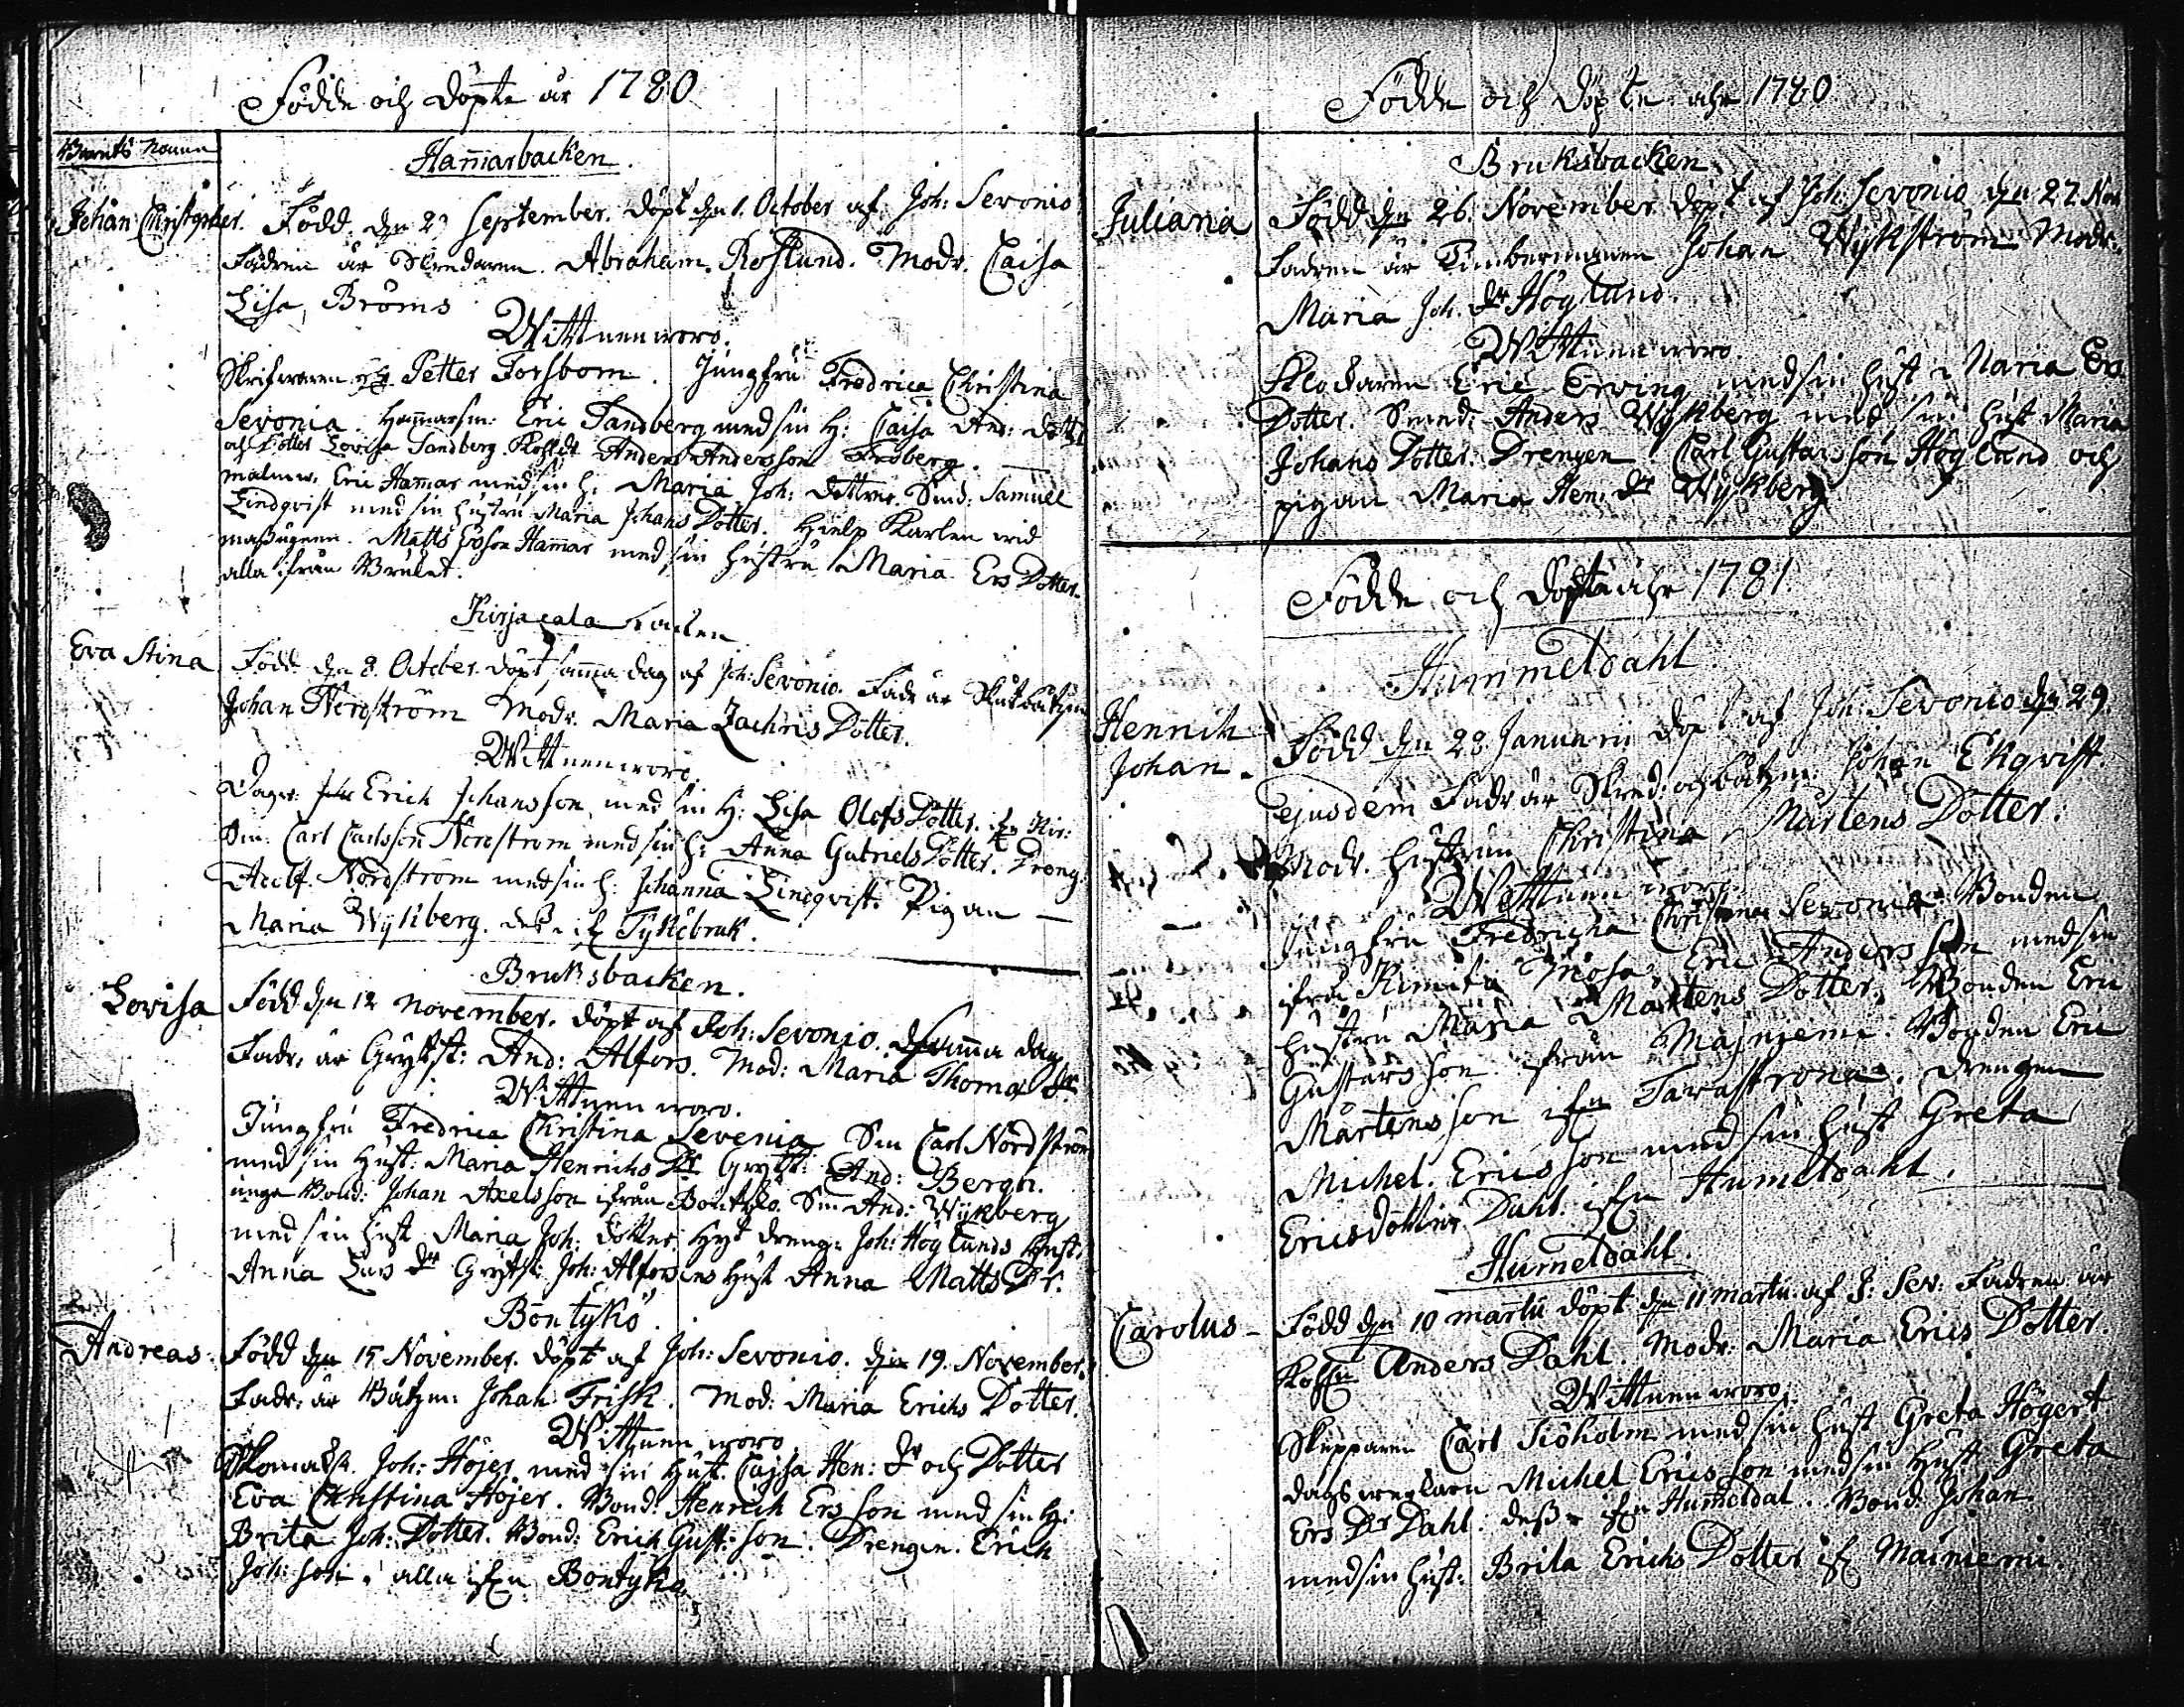 Födde och döpte år 1780
Barnets Namn
Ham̄arbacken.
Johan Christopher. Född den 23 September. döpt den 1. October af Joh: Sevonio
Fadren är Skredaren. Abraham. Roslund. Modr. Caisa
Lisa, Bröms
Wittnen woro.
Skrifwaren Petter Forsbom. Jungfru Fredrica Christina
Sevonia. Ham̄arsm: Eric Sandberg med sin H: Caisa And: Dotter
och Dotter Lovisa Sandberg. Anders Andersson Fröberg.
Eric Ham̄ar med sin h: Maria Joh: dotter Smd: Samuel
Lindqvist med sin hustru Maria Johans Dotter. Hielp Karlen wid
masugnen. Matts Ersson Ham̄ar med sin hustru Maria Ers Dotter.
alla ifrån Bruket.
Kirjacala backen
Eva Stina Född den 8. October döpt sam̄a dag af Joh: Sevonio. Fadr är
Johan Nordström Modr. Maria Zachris Dotter.
Wittnen woro.
Dagw: Erich Johansson, med sin H: Lisa Olofs Dotter. ifrn Kir:
Sm: Carl Carlsson Nordstrom med sin h: Anna Gabriels Dotter. Dreng.
Adolf. Nordström med sin h: Johanna Lindqvist. Pigan
Maria Wykberg. desse if Tyköbruk.
Bruksbacken.
Lovisa Född den 12 November. döpt af Joh: Sevonio. sam̄a dag
Fadr. är And: Alfors. Mod: Maria Thomas Dr
Wittnen woro.
Jungfru Fredrica Christina Sevonia Sm Carl Nordström
med sin Hust: Maria Henrichs Dr And: Bergn.
unga Bond: Johan Axelsson ifrån Böntykö. Sm And: Wykberg
med sin Hust Maria Joh: dotter. Hyt dreng: Joh: Höglunds Hust:
Anna Lars dr Joh: Alforsens Hust Anna Matts Dr.
Böntykö.
Andreas. Född den 15 November. döpt af Joh: Sevonio. den 19. November.
Fadr. är Båtzm: Johan Frisk. Mod: Maria Erichs Dotter.
Wittnen woro
Joh: Höjer med sin Hust. Cajsa Hen: dr och Dotter
Eva Christina Höjer. Bond: Henrich Ersson med sin H:
Brita Joh: Dotter. Bond: Erich Gust: son. Drengen. Erich
Joh: son. alla ifrn Böntykö.
Födde och döpte åhr 1780
Bruksbacken
Juliana Född den 26 November döpt af Joh: Sevonio den 27 Nov
Fadren är Timberman̄en Johan Wykström Modr.
Maria Joh. dr Höglund.
Wittnen woro.
Klockaren Eric Erving med sin hust Maria Ers.
Dotter. Smed: Anders Wykberg med sin hust Maria
Johans Dotter. Drengen Carl Gustavsson Höglund och
pigan Maria Hen: dr Wykberg
Födde och döpte åhr 1781.
Hummeldahl.
Henrich Johan. Född den 28 Januarii döpt af Joh: Sevonio den 29
ejusdem Fadr är Skred: och båtzm: Johan Ekqvist.
Modr. hustrun Christina Mårtens Dotter:
Wittnen woro.
Jungfru Fredricha Christina Sevonia. Bonden
ifrå Kimito Eric Andersson med sin
hustru Maria Mårtens Dotter. Bonden Eric
Gustavsson ifrån Majniemi. Bonden Eric
Mårtensson ifrn drengen
Michel. Ericsson med sin hust Greta
Ericsdotter Dahl. ifrn Hum̄eldahl.
Hum̄eldahl
Carolus - Född den 10 martii döpt den 11 martii. af J: Sev: Fadren är
Anders Dahl. Modr. Maria Erics Dotter.
Wittnen woro.
Skepparen Carl Siöholm med sin hust Greta Högert
Michel Ericsson med sin Hust Greta
Ers Dr Dahl: desse ifrn Hum̄eldal. Bond: Johan
med sin hust: Brita Erichs Dotter if Mainiemi.